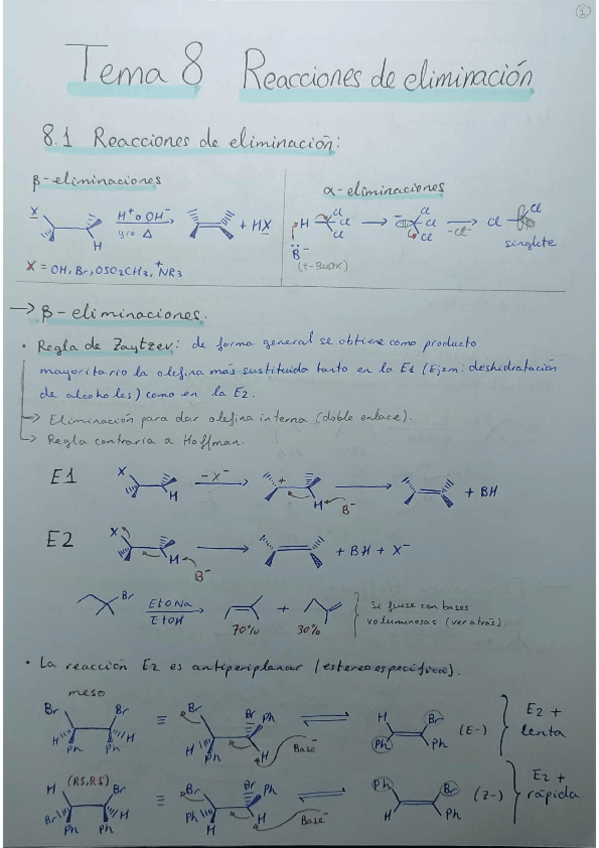 1
Tema 8 Reacciones de eliminación
8.1 Reacciones de eliminación:
β-eliminaciones
α-eliminaciones
X H⁺ o OH⁻ y/o Δ H + HX
H Cl Cl Cl B⁻ (t-BuOK) Cl Cl Cl -Cl⁻ Cl Cl singlete
X = OH, Br, OSO2CH3, ⁺NR3
→ β-eliminaciones.
• Regla de Zaytzev: de forma general se obtiene como producto
mayoritario la olefina más sustituida tanto en la E1 (Ejem: deshidratación
de alcoholes) como en la E2.
→ Eliminación para dar olefina interna (doble enlace).
→ Regla contraria a Hoffman.
E1 X H -X⁻ + H B⁻ + BH
E2 X H B⁻ + BH + X⁻
Br EtONa EtOH 70% + 30% Si fuese con bases
voluminosas (ver atrás)
• La reacción E2 es antiperiplanar (estereoespecífica).
meso
Br Br H Ph Ph H ≡ Br Br Ph H Ph H Base⁻ H Br Ph Ph (E-) E2 + lenta
(RS,RS)
H Br Br Ph Ph H ≡ Br Br Ph Ph H H Base⁻ Ph Br H Ph (Z-) E2 + rápida